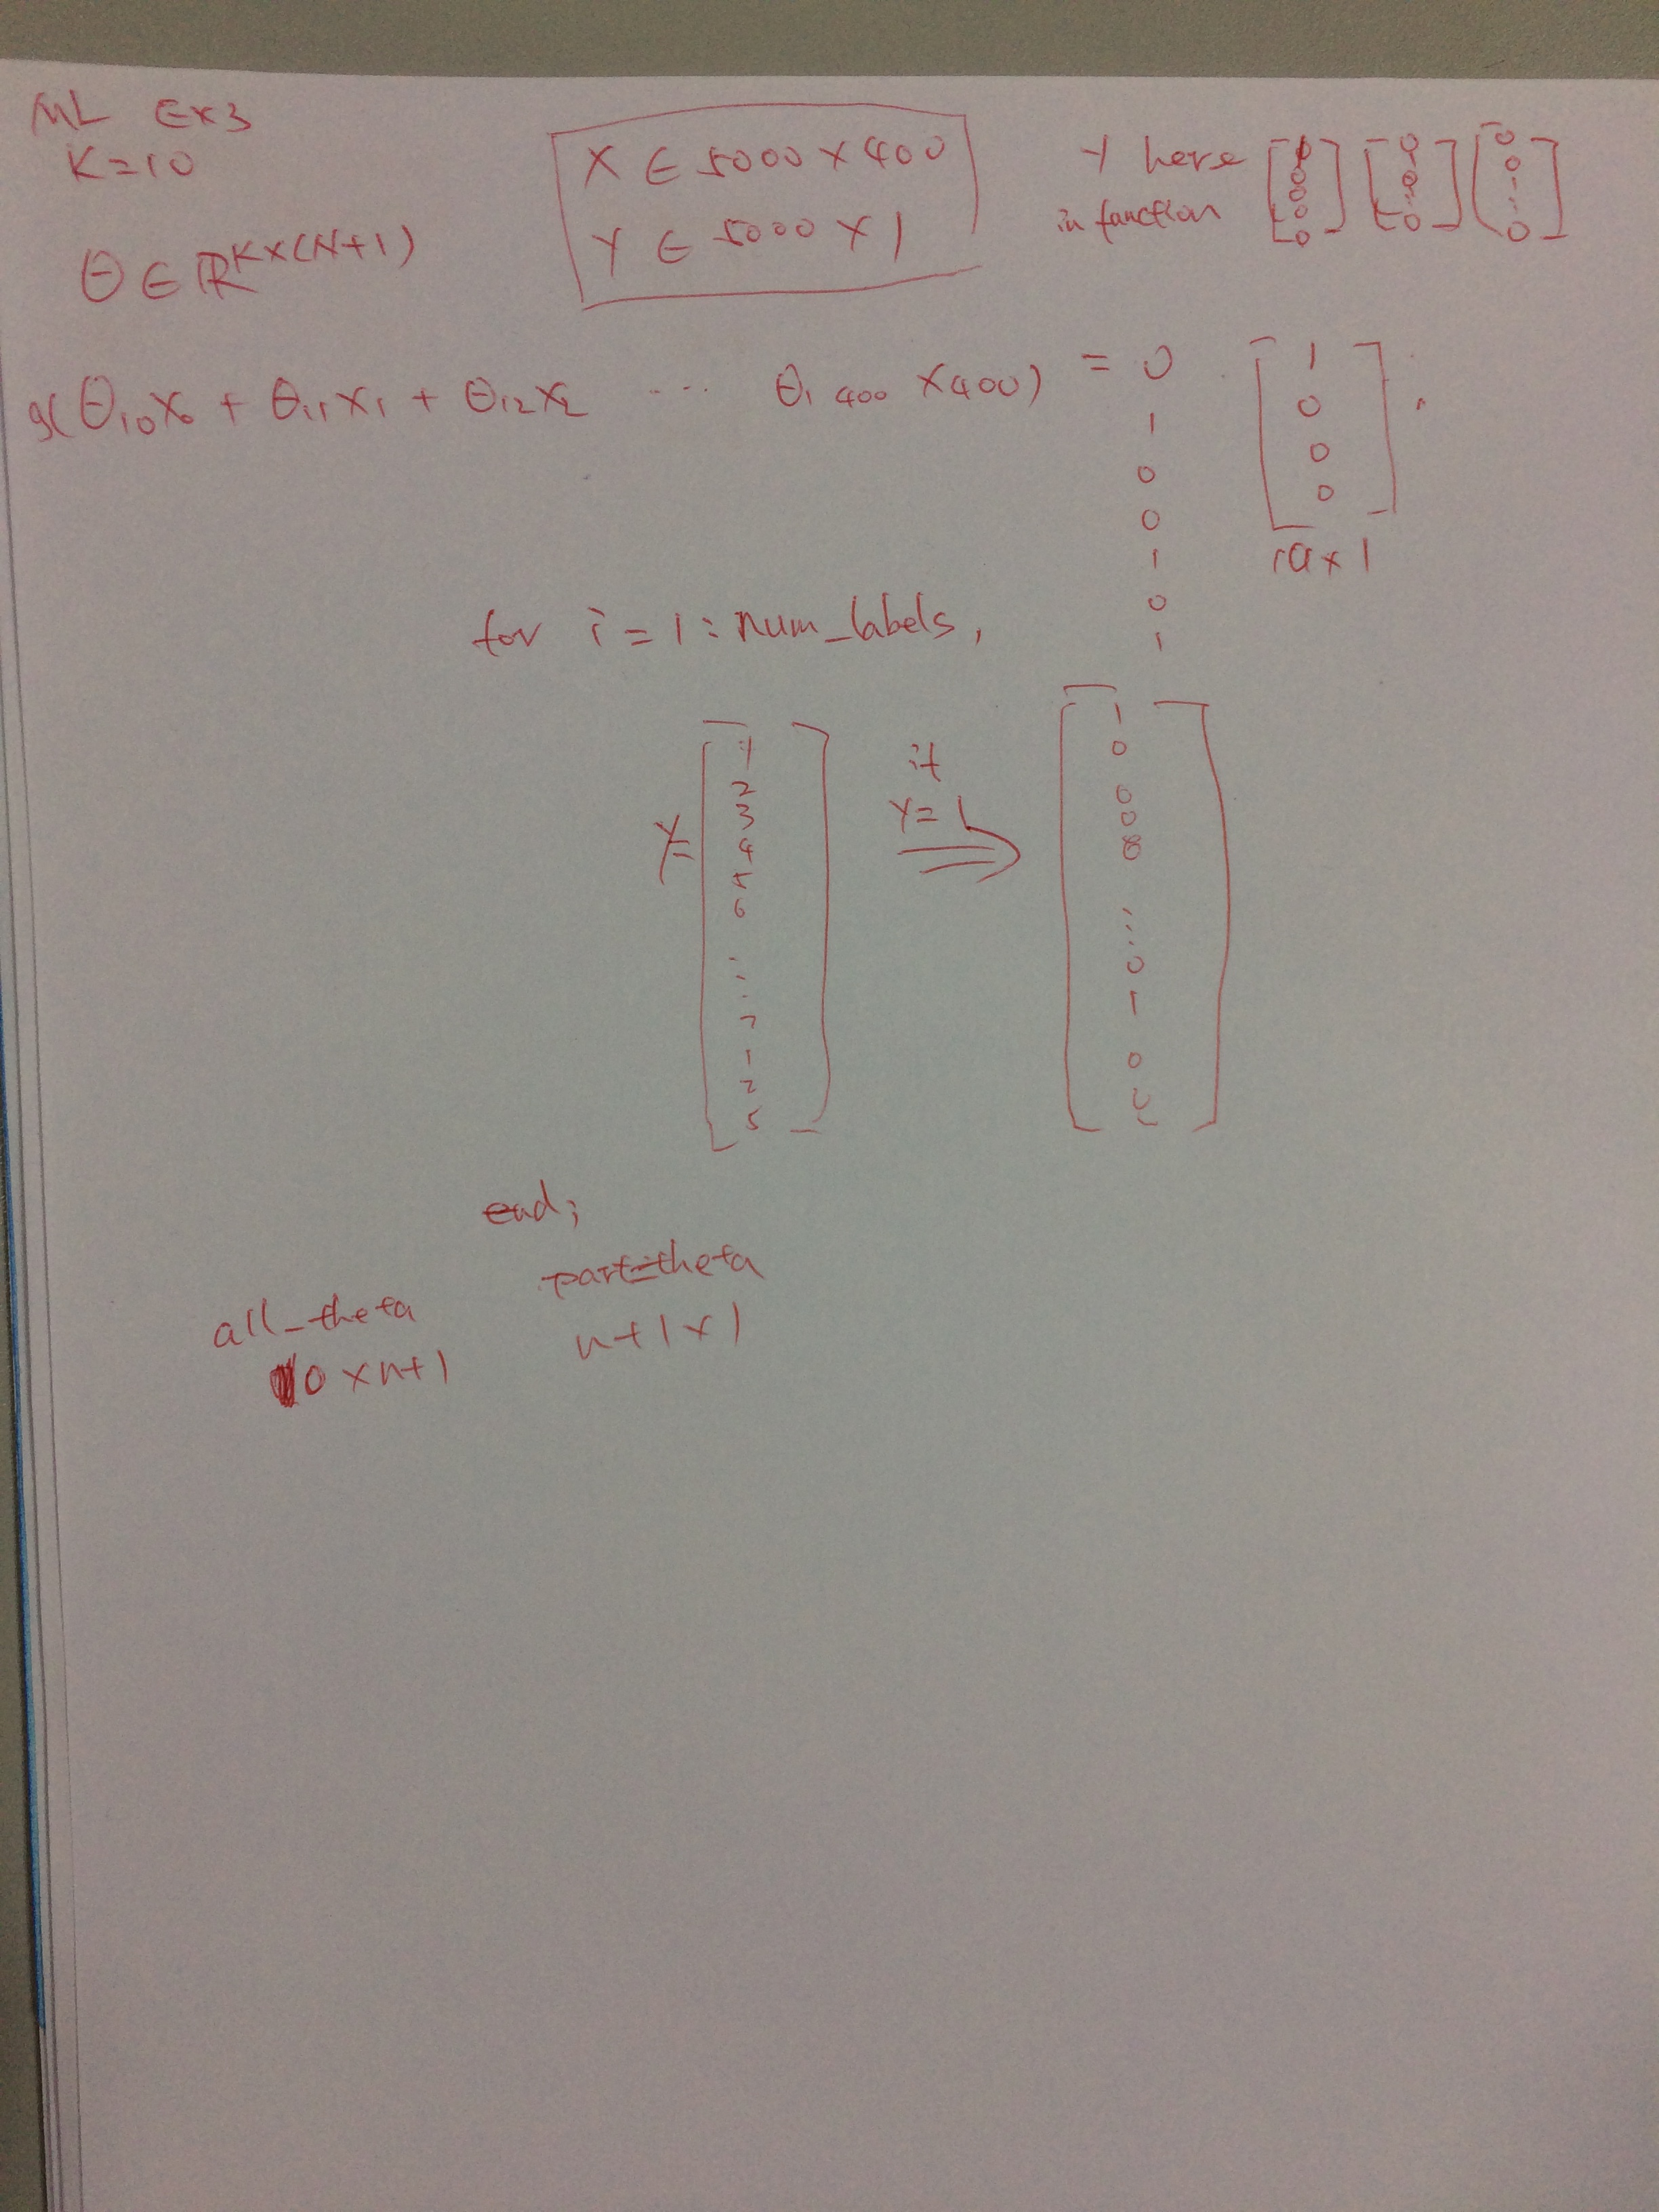 ML Ex3
K=10
θ ∈ ℝ^K×(N+1)
X ∈ 5000 × 400
Y ∈ 5000 × 1
Y here
in function
g(θ10x0 + θ11x1 + θ12x2 ... θ1 400 x400) = 0
1
0
0
1
0
1
1
0
0
0
10×1
for i = 1:num_labels,
Y=
1
2
3
4
5
6
⋮
7
1
2
5
if
Y=1
⇒
1
0
0
0
⋮
0
1
0
end;
all_theta
10 × n+1
part_theta
n+1 × 1